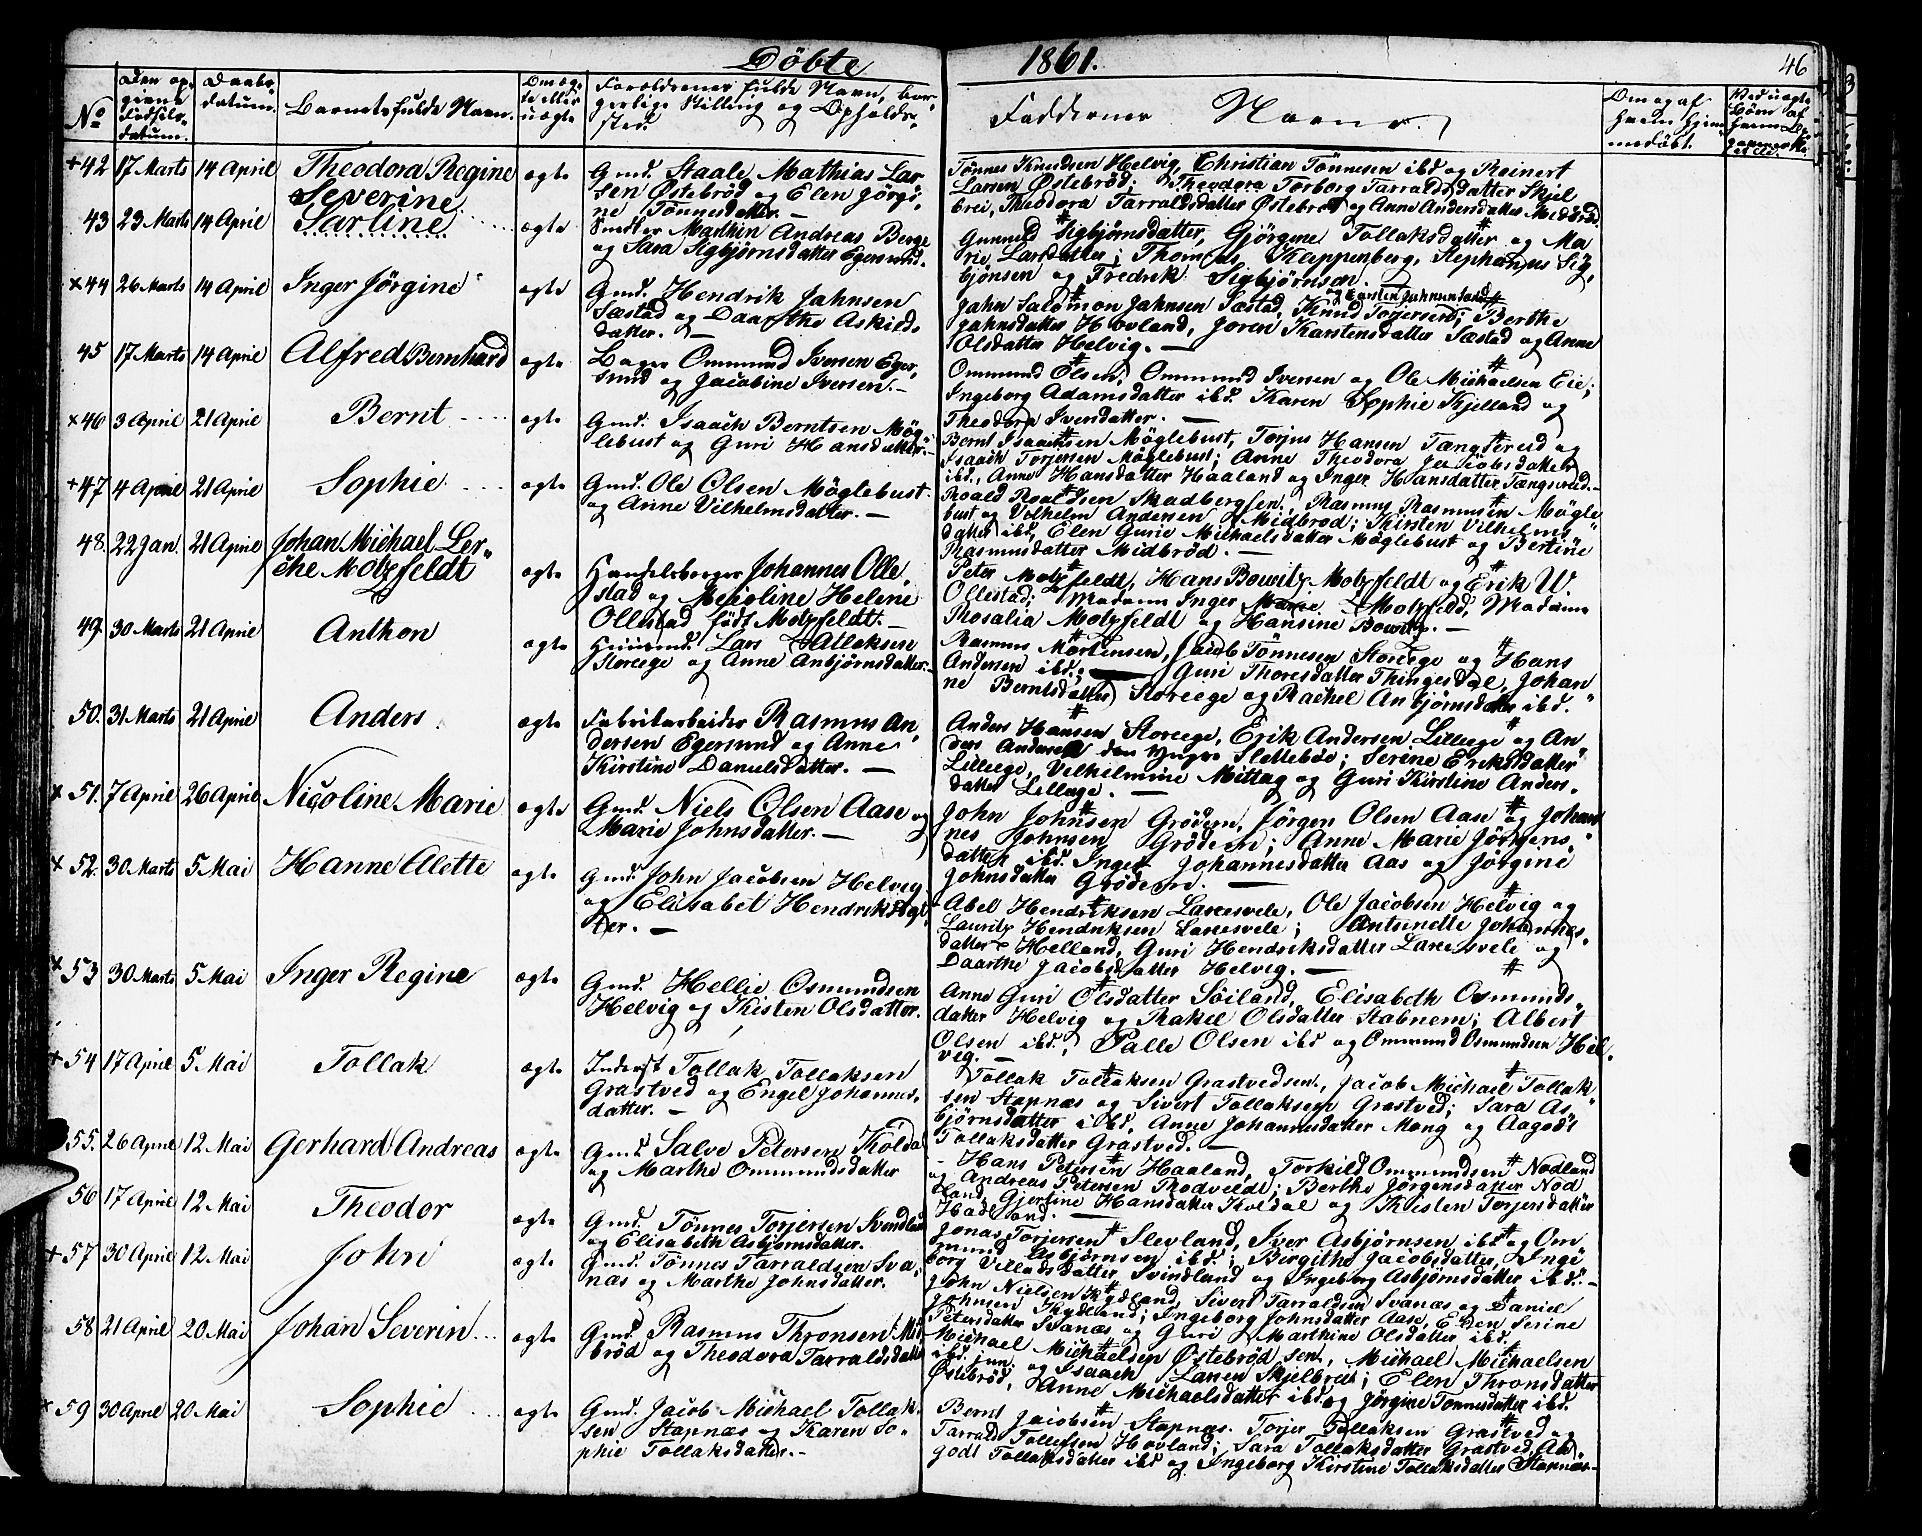 Döbte 1861. 46
No
Den opgivne Fødselsdatum.
Daabsdatum.
Barnets fulde Navn.
Om ægte eller uægte
Forældrenes fulde Navn, borgerlige Stilling og Opholdssted.
Faddernes Navne.
Om og af hvem hjemmedøbt.
+42 17 Marts 14 April Theodora Regine Severine ægte
Gmd. Staale Mathias Larsen Østebrød og Elen Jörgine Tönnesdatter. —
Tönnes Knudsen Helvig, Christian Tönnesen ibd og Reinert
Larsen Østebröd; Theodora Torborg Tarraldsdatter Skjel
brei, Theodora Tarraldsdatter Østebrød og Anne Andersdatter Midbröd.
43 23 Marts 14 April Sartine ægte
Smeder Mathin Andreas Berge
og Sara Sigbjørnsdatter Egersund.
Gunnild Sigbjørnsdatter, Gjörgine Tollaksdatter og Ma
rie Larsdatter; Thomas Kleppenberg, Stephanus Sig
bjönsen og Fredrik Sigbjørnsen.
×44 26 Marts 14 April Inger Jörgine ægte
Gmd. Hendrik Jahnsen
Sæstad og Daarthe Askilds
datter. —
og Karsten Jahnsen Sæstad
Jahn Salomon Jahnsen Sæstad, Knud Torjersen; Berthe
Jahnsdatter Hovland, Joren Karstensdatter Sæstad og Anne
Olsdatter Helvig. —
45 17 Marts 14 April Alfred Bernhard ægte
Bager Ommund Iversen Eger
sund og Jacobine Iversen. —
Ommund Olsen, Ommund Iversen og Ole Michaelsen Eie;
Ingeborg Adamsdatter ibd. Karen Sophie Kjelland og
Theodora Iversdatter. —
×46 3 April 21 April Bernt ægte
Gmd. Isaach Berntsen Mög
lebust og Guri Hansdatter. —
Bernt Isaachsen Möglebust, Torjus Hansen Tængsreid og
Isaach Torjersen Möglebust; Anne Theodora Jacobsdatter
ibd., Anne Hansdatter Haaland og Inger Hansdatter Tængsreid. —
+47 4 April 21 April Sophie ægte
Gmd. Ole Olsen Möglebust
og Anne Vilhelmsdatter. —
Roald Roaldsen Skadbergsen, Rasmus Rasmussen Mögle
bust og Vilhelm Andersen Midbrød; Kirsten Vilhelms
datter ibd, Elen Gurie Michaelsdatter Möglebust og Bertine
Rasmusdatter Midbrød. —
48. 22 Jan. 21 April Johan Michael Ler
che Motzfeldt ægte
Handelsborger Johannes Olle
stad og Mecoline Helene
Ollestad födt Motzfeldt. —
Peter Motzfeldt, Hans Bowitz Motzfeldt og Erik W.
Ollestad; Madame Inger Marie Motzfeld, Madame
Rosalia Motzfeldt og Hansine Bowitz. —
49. 30 Marts 21 April Anthon ægte
Huusmd. Lars Atleksen
Storeege og Anne Anbjørnsdatter. —
Rasmus Mortensen, Jacob Tönnesen Storeege og Hans
Andersen ibd.; Guri Thoresdatter Thingesdal, Johan
ne Berntsdatter Storeege og Rachel Anbjørnsdatter ibd.
50. 31 Marts 21 April Anders ægte
Fabrikarbeider Rasmus An
dersen Egersund og Anne
Kirstine Danielsdatter. —
Anders Hansen Storeege, Erik Andersen Lilleege og An
ders Andersen den yngre Slettebøe; Serine Eriksdatter
Lilleege, Vilhelmine Mittag og Guri Kirstine Anders
datter Lilleege. —
×51. 7 April 26 April Nicoline Marie ægte
Gmd. Niels Olsen Aase og
Marie Johnsdatter. —
John Johnsen Grödem, Jörgen Olsen Aase og Johan
nes Johnsen Grödem; Anne Marie Jörgens
datter ibd. Inger Johannesdatter Aas og Jörgine
Johnsdatter Grödem. —
×52. 30 Marts 5 Mai Hanne Elette ægte
Gmd. John Jacobsen Helvig
og Elisabet Hendriksdat
ter. —
Abel Hendriksen Larcesvele, Ole Jacobsen Helvig og
Lauritz Hendriksen Larcesvele; Antonette Johannes
datter Helland, Guri Hendriksdatter Larcesvele og
Daarthe Jacobsdatter Helvig. —
×53 30 Marts 5 Mai Inger Regine ægte
Gmd. Hellie Osmundsen
Helvig og Kisten Olsdatter.
Anne Guri Olsdatter Söiland, Elisabeth Osmunds
datter Helvig og Rakel Olsdatter Stabnem; Albert
Olsen ibd., Palle Olsen ibd og Ommund Osmundsen Hel
vig. —
+54 17 April 5 Mai Tollak ægte
Inderst Tollak Tollaksen
Grastved og Engel Johannes
datter. —
Tollak Tollaksen Grastvedsen., Jacob Michael Tollak
sen Stapnæs og Sivert Tollaksen Grastved; Sara As
bjørnsdatter ibd, Anne Johannesdatter Mong og Aagodt
Tollaksdatter Grastved. —
55. 26 April 12 Mai Gerhard Andreas ægte
Gmd. Salve Petersen Kölda
og Marthe Ommundsdatter
Hans Petersen Haaland, Torkild Ommundsen Nodland
og Andreas Petersen Rodveldt; Berthe Jörgensdatter Nod
land, Gjertine Hansdatter Koldal og Kisten Torjersdatter
Hadland. —
56 17 April 12 Mai Theodor ægte
Gmd. Tönnes Torjersen Svindland
og Elisabeth Asbjørnsdatter.
Jonas Torjersen Slevland, Iver Asbjørnsen ibd og Om
mund Asbjørnsen ibd.; Birgithe Jacobsdatter, Inge
borg Villadsdatter Svindland og Ingeborg Asbjørnsdatter ibd. —
+57 30 April 12 Mai John ægte
Gmd. Tönnes Tarraldsen Sva
næs og Marthe Johnsdatter.
John Nielsen Kydland, Sivert Tarraldsen Svanæs og Daniel
Johnsen Kydland; Ingeborg Johnsdatter Aase, Elen Serine
Petersdatter Svanæs og Guri Marthine Olsdatter ibd.
58 21 April 20 Mai Johan Severin ægte
Gmd. Rasmus Thronsen Mid
bröd og Theodora Tarraldsdatter
Michael Michaelsen Østebröd sen., Michael Michaelsen
ibd. jun. og Isaach Larsen Skjelbrei; Elen Thronsdatter
Østebröd, Anne Michaelsdatter ibd og Jörgine Tönnesdatter ibd.
×59 30 April 20 Mai Sophie ægte
Gmd. Jacob Michael Tollak
sen Stapnæs og Karen So
phie Tollaksdatter. —
Bernt Jacobsen Stapnæs, Torjer Tollaksen Grastved og
Tarrald Tollefsen Hovland; Sara Tollaksdatter Grastved, Aa
godt Tollaksdatter ibd og Ingeborg Kirstine Tollaksdatter Stapnæs. —